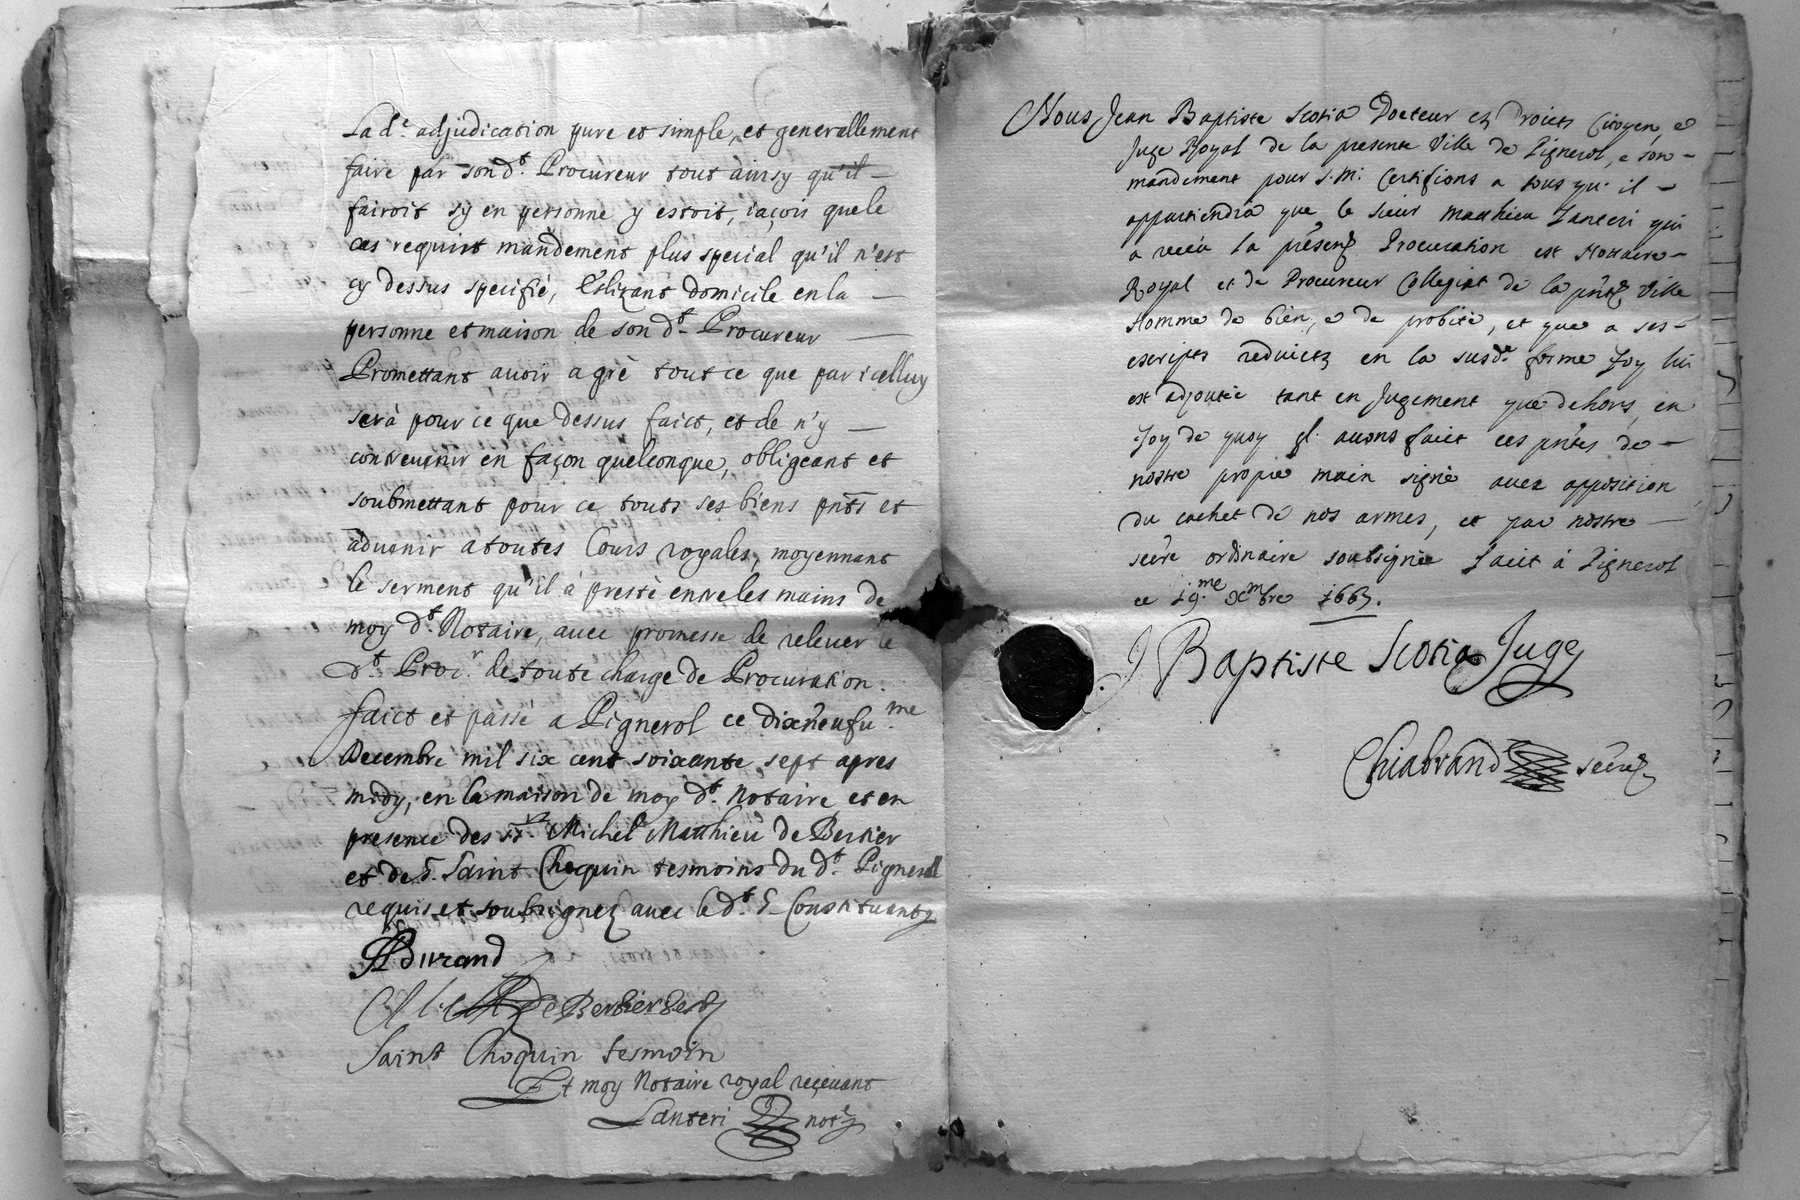 La d.e adjudication pure et simple, et generallement
faire par son d.t Procureur tout ainsy qu'il —
fairoit sy en personne y estoit, jaçois que le
cas requist mandement plus special qu'il n'est
cy dessus specifié, Eslizant domicile en la —
personne et maison de son d.t Procureur —
Promettant avoir agrè tout ce que par icelluy
serà pour ce que dessus faict, et de n'y —
contrevenir en façon quelconque, obligeant et
soubmettant pour ce touts ses biens pnts et
advenir a toutes Cours royales, moyennant
le serment qu'il à prestè entre les mains de
moy d.t Notaire, avec promesse de relever le
d.t Proc.r de toute charge de Procuration.
faict et passé a Pignerol ce dixneufu.me
Decembre mil six cent soixante sept apres
midy, en la maison de moy d.t Notaire et en
presence des Srs Michel Matthieu de Bertier
et de S. Saint Choquin tesmoins du d.t Pignerol
requis et soubsignez avec le d.t S. Constituant
Durand
de Bertier
Saint Choquin tesmoin
Et moy Notaire royal reçevant
Lanteri not.e
Nous Jean Baptiste Scotia Docteur ez Droicts Citoyen, e
Juge Royal de la presente Ville de Pignerol, e son —
mandement pour S. M. Certifions a tous qu'il —
appartiendra que le sieur Matthieu Lanteri qui
a receu la presente Procuration est Nottaire —
Royal et de Procureur Collegiat de la pnte Ville
Homme de bien, e de probité, et que a ses —
escripts reduicts en la susd.e forme foy lui
est adjoutée tant en Jugement que dehors, en
foy de quoy avons faict ces pntes de —
nostre propre main signé avec apposition
du cachet de nos armes, et par nostre —
secre ordinaire soubsignée faict à Pignerol
ce 19.me Xmbre 1667.
J Baptiste Scotia Juge
Chiabrand secre